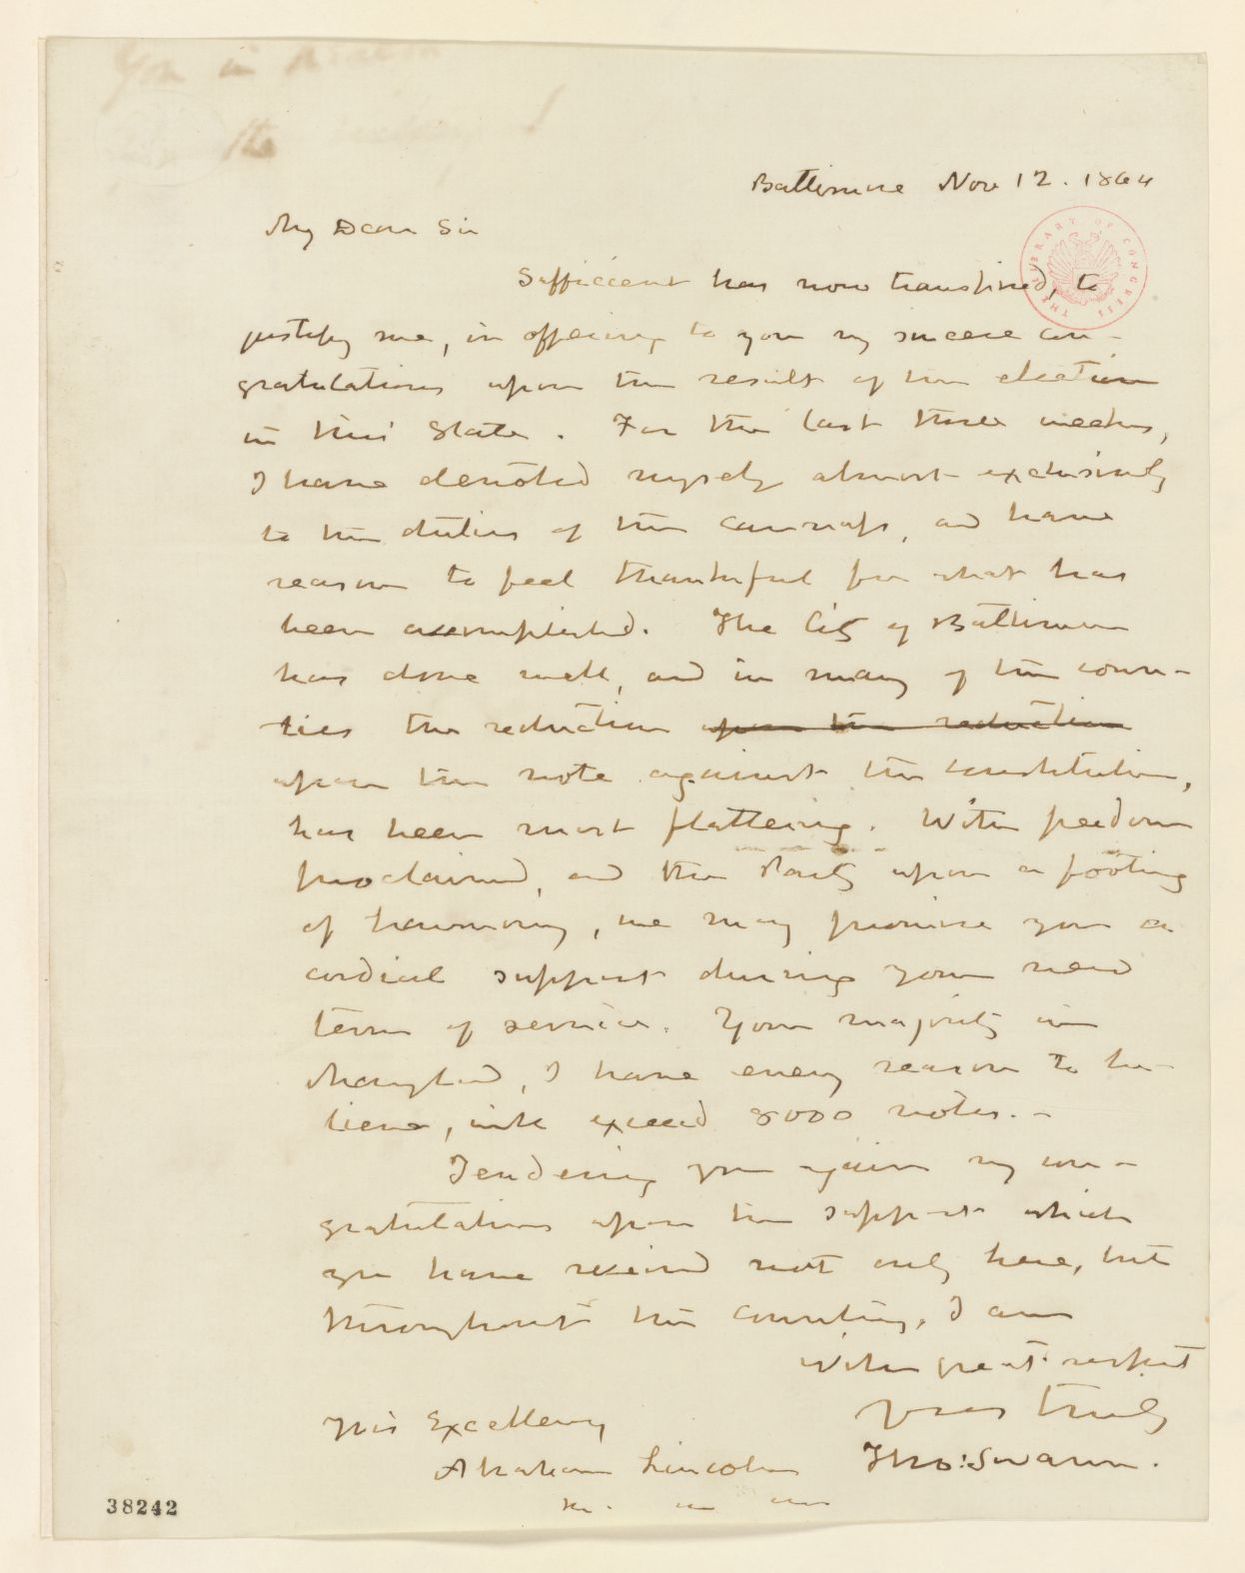 Baltimore Nov 12. 1864
My Dear Sir
THE LIBRARY OF CONGRESS
Sufficient has now transpired, to
justify me, in offering to you my sincere con-
gratulations upon the result of the election
in this State. For the last three weeks,
I have devoted myself almost exclusively
to the duties of the canvass, and have
reason to feel thankful for what has
been accomplished. The City of Baltimore
has done well, and in many of the coun-
ties the reduction upon the reduction
upon the vote against the constitution,
has been most flattering. With freedom
proclaimed, and the Party upon a footing
of harmony, we may promise you a
cordial support during your new
term of service. Your majority in
Maryland, I have every reason to be-
lieve, will exceed 8000 votes. -
Tendering you again my con-
gratulations upon the support which
you have received not only here, but
throughout the country, I am
with great respect
yours truly
His Excellency
Abraham Lincoln Tho: Swann.
38242